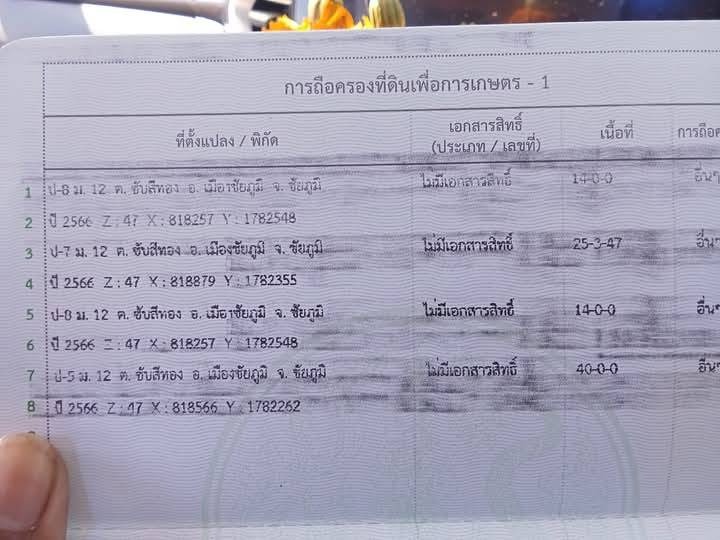 การถือครองที่ดินเพื่อการเกษตร - 1
ที่ตั้งแปลง / พิกัด เอกสารสิทธิ์ (ประเภท / เลขที่) เนื้อที่ การถือค
1 ป-8 ม. 12 ต. ซับสีทอง อ. เมืองชัยภูมิ จ. ชัยภูมิ ไม่มีเอกสารสิทธิ์ 14-0-0 อื่นๆ
2 ปี 2566 Z : 47 X : 818257 Y : 1782548
3 ป-7 ม. 12 ต. ซับสีทอง อ. เมืองชัยภูมิ จ. ชัยภูมิ ไม่มีเอกสารสิทธิ์ 25-3-47 อื่นๆ
4 ปี 2566 Z : 47 X : 818879 Y : 1782355
5 ป-8 ม. 12 ต. ซับสีทอง อ. เมืองชัยภูมิ จ. ชัยภูมิ ไม่มีเอกสารสิทธิ์ 14-0-0 อื่นๆ
6 ปี 2566 Z : 47 X : 818257 Y : 1782548
7 ป-5 ม. 12 ต. ซับสีทอง อ. เมืองชัยภูมิ จ. ชัยภูมิ ไม่มีเอกสารสิทธิ์ 40-0-0 อื่นๆ
8 ปี 2566 Z : 47 X : 818566 Y : 1782262